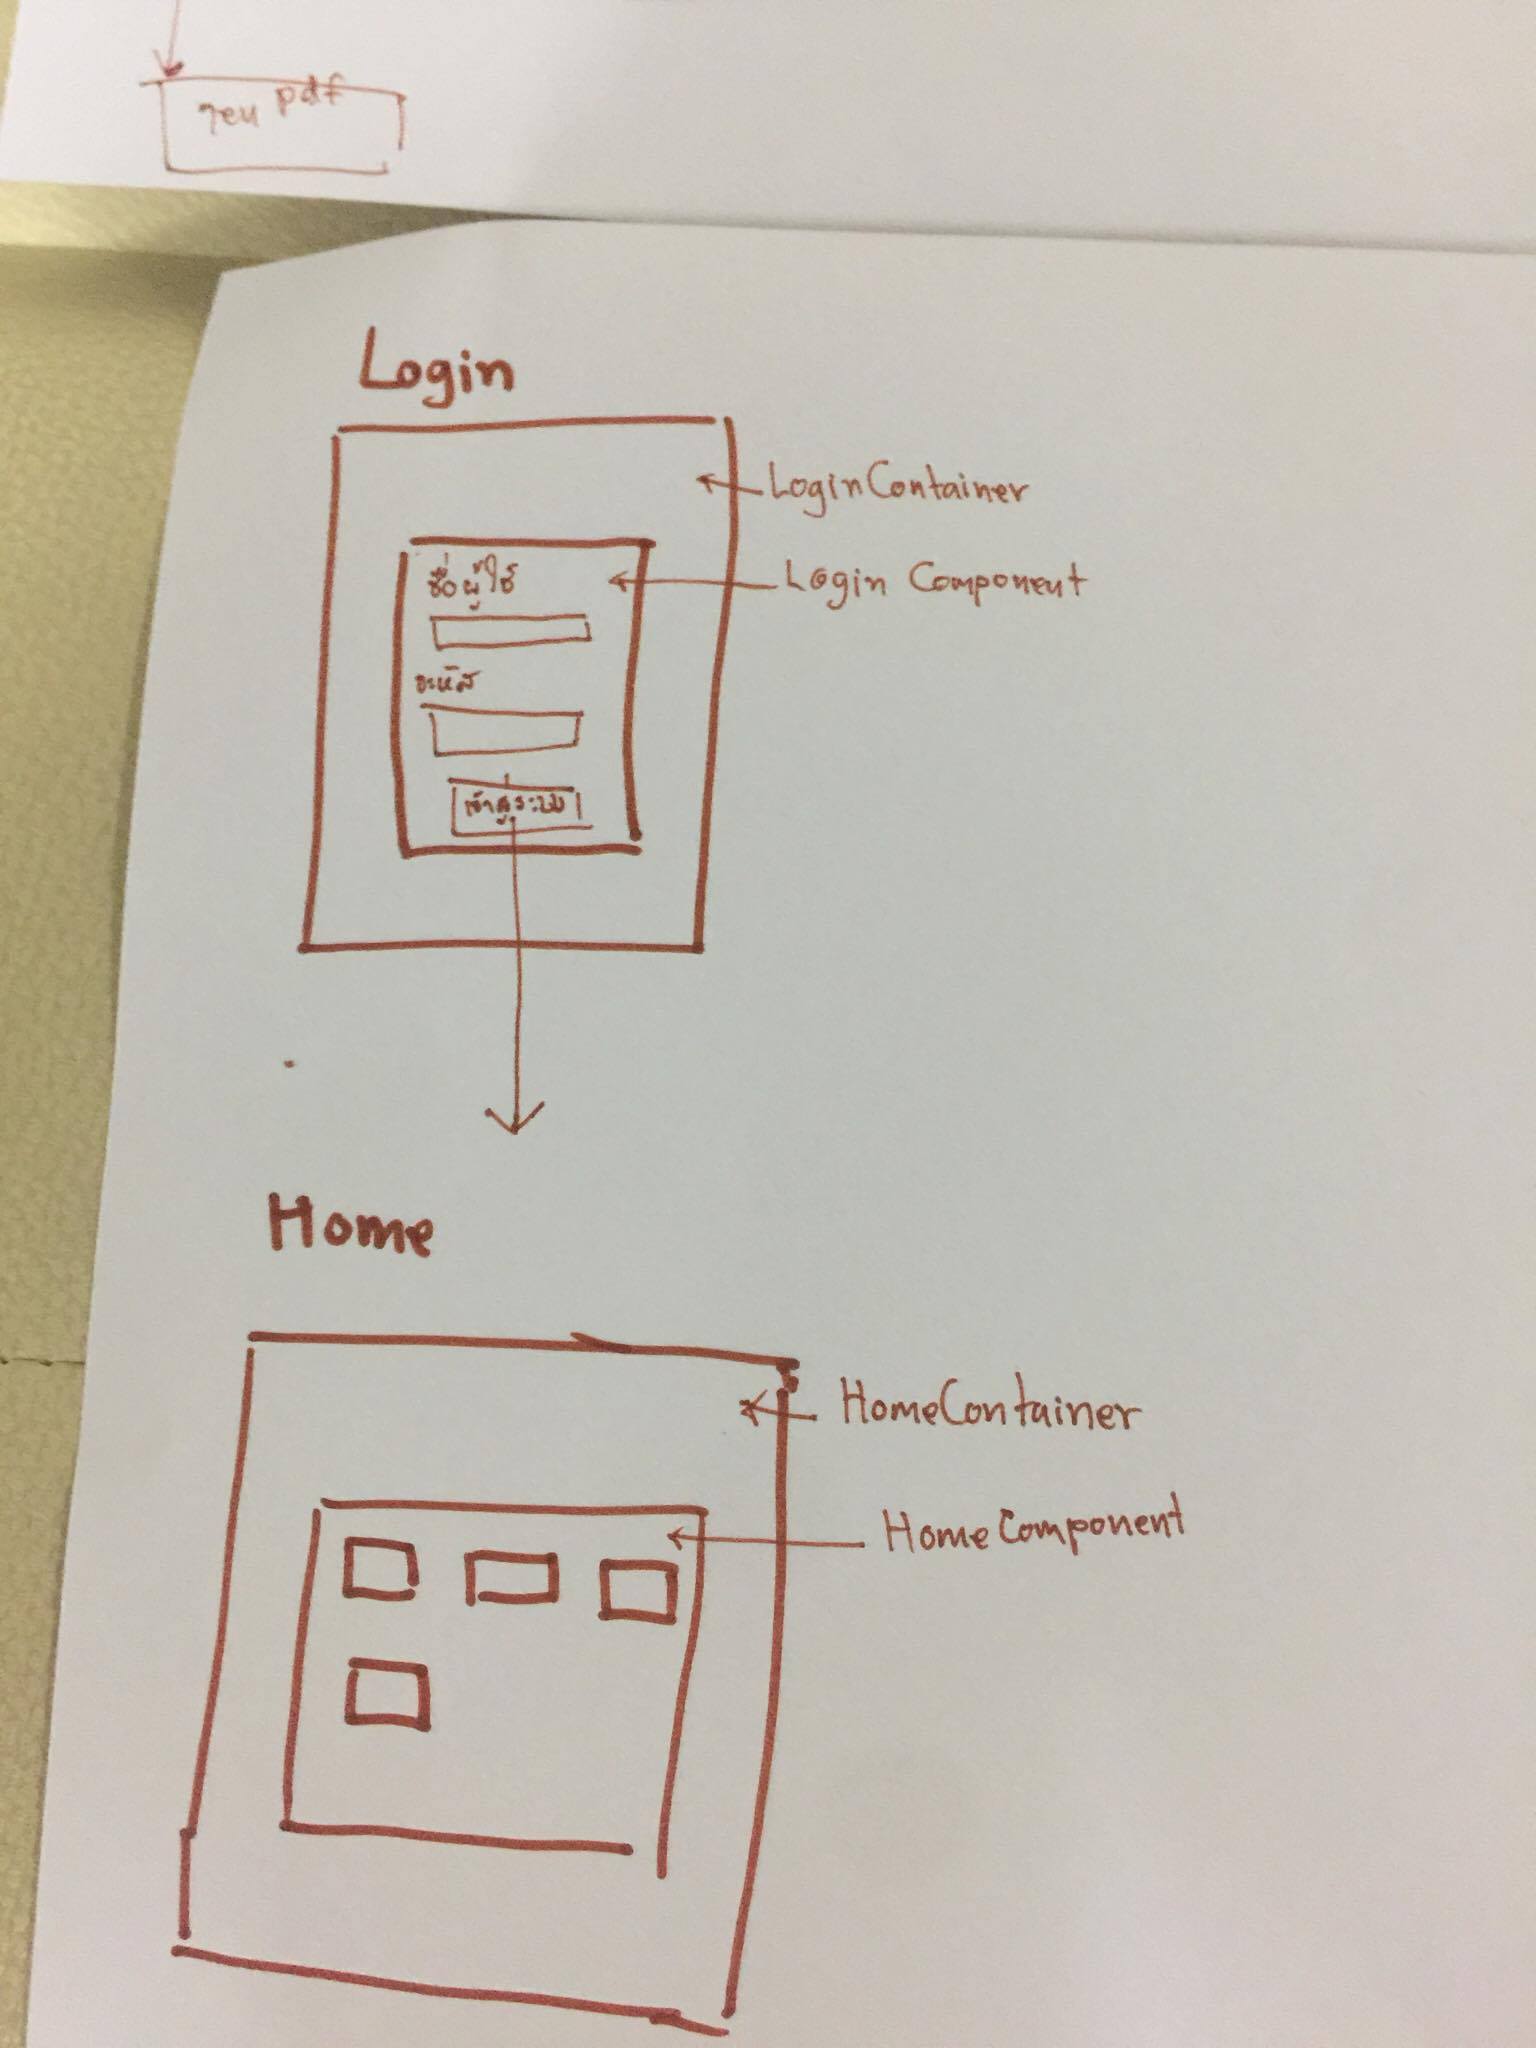 pdf
Login
LoginContainer
ชื่อผู้ใช้
Login Component
รหัส
เข้าสู่ระบบ
Home
HomeContainer
HomeComponent